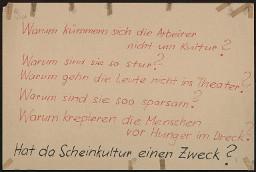 Warum kümmern sich die Arbeiter
nicht um Kultur?
Warum sind sie so stur?
Warum gehn die Leute nicht ins Theater?
Warum sind sie soo sparsam?
Warum krepieren die Menschen
vor Hunger im Dreck?
Hat da Scheinkultur einen Zweck?